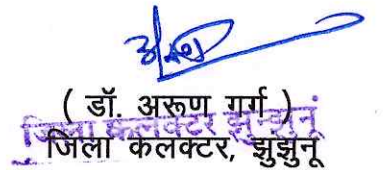 ( डॉ. अरूण गर्ग )
जिला कलक्टर झुन्झुनूं
जिला कलक्टर, झुझुनू